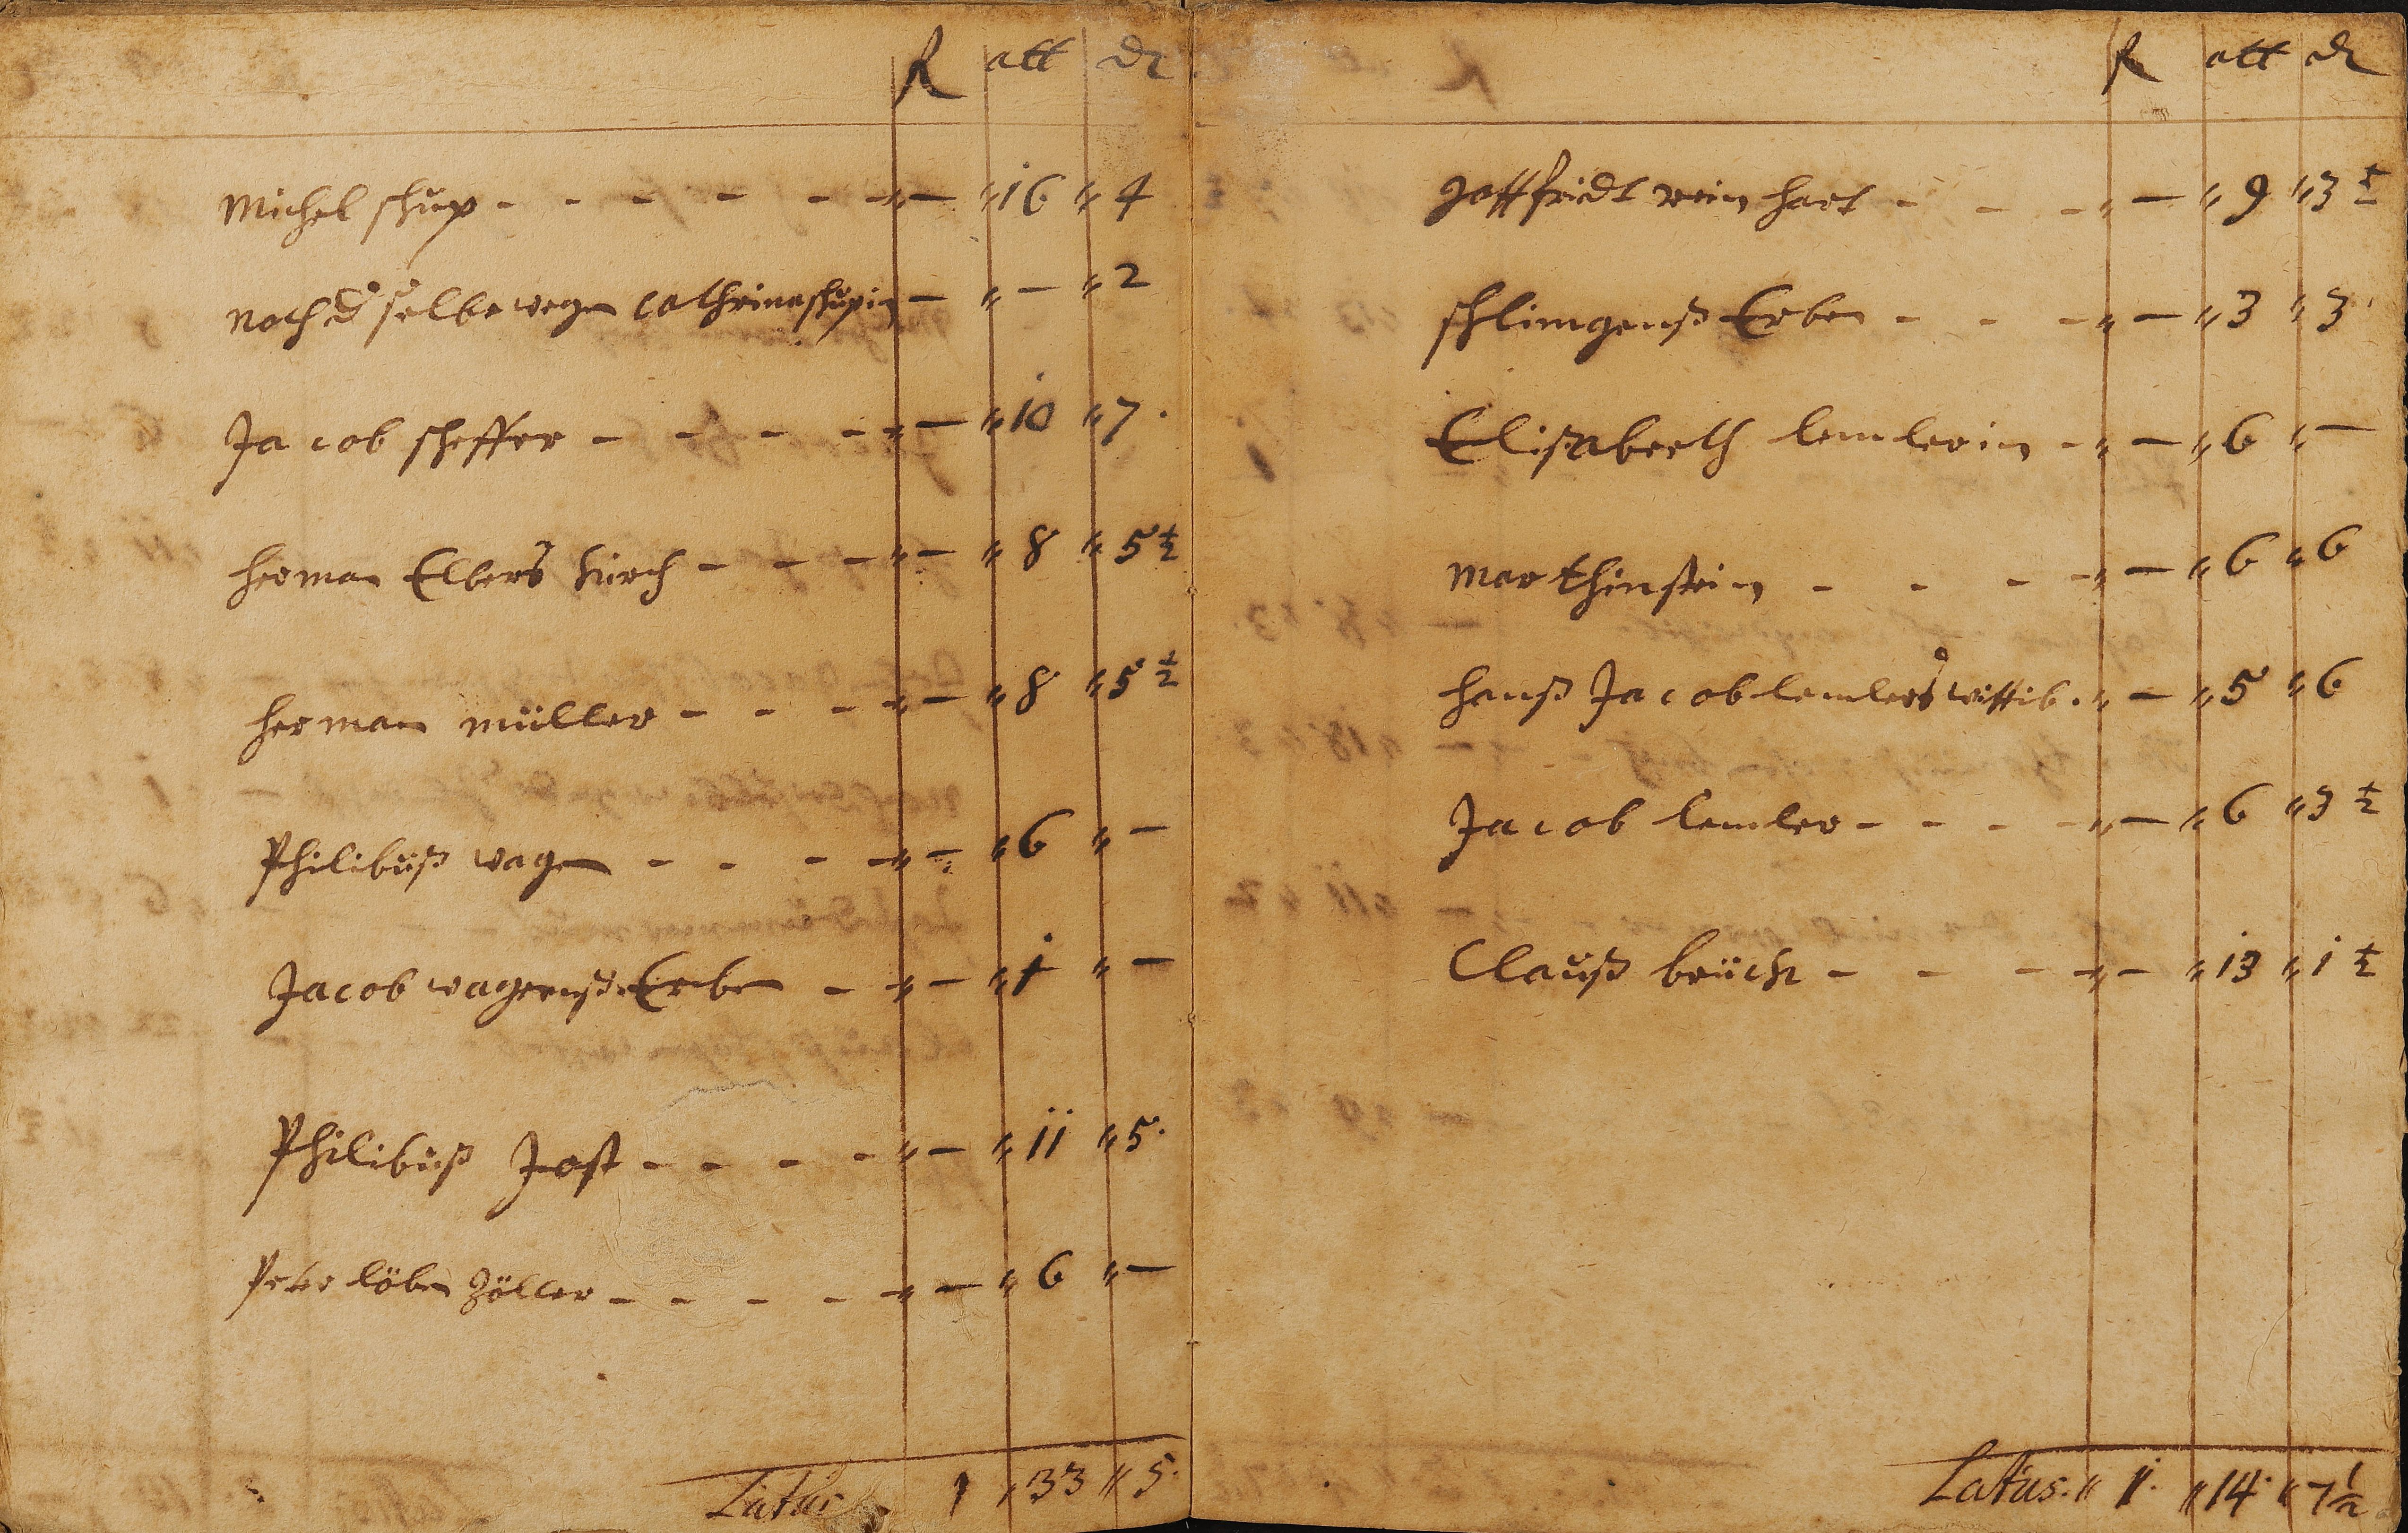 R att ₰
Michel schup - - - - - - " — " 16 " 4
Noch d selbe wegen Cathrina schupin — " — " 2
Jacob scheffer - - - - " — " 10 " 7.
Herman Elbers Kirch - - - " — " 8 " 5 ½
Herman müller - - - " — " 8 " 5 ½
Philibuß wagen - - - " — " 6 " —
Jacob wagenerß Erben - " — " 1 " —
Philibuß Jost - - - - " — " 11 " 5.
Peter löben Zöller - - - - " — " 6 " —
Latus 1 " 33 " 5.
R att ₰
Gottfriedt weinhart - - - " — " 9 " 3 ½
schlimgenß Erben - - - " — " 3 " 3.
Elisabeeth lemlerin - " — " 6 " —
Marthinstein - - - - " — " 6 " 6
Hanß Jacob lemlers wittib. " — " 5 " 6
Jacob lemler - - - - " — " 6 " 3 ½
Clauß brüch - - - - " — " 13 " 1 ½
Latus. " 1. " 14. " 7 ½